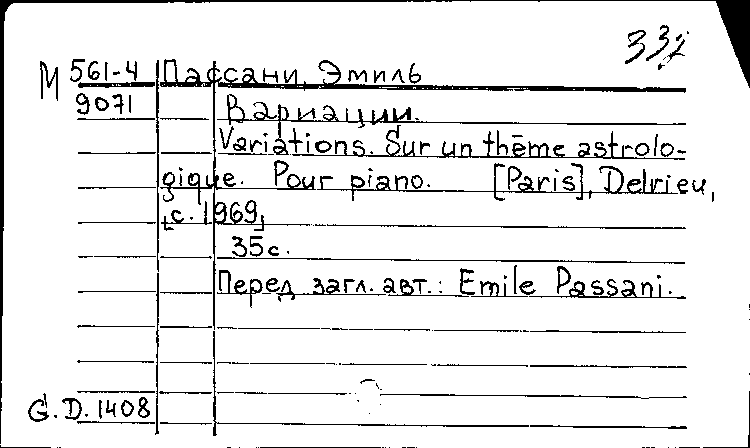 332
М 561-4 Пассани, Эмиль
9071 Вариации.
Variations. Sur un thème astrolo-
gique. Pour piano. [Paris], Delrieu,
[c. 1969]
35 с.
Перед загл. авт.: Emile Passani.
G.D.1408